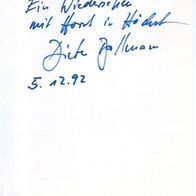 Ein Wiedersehen
mit Horst in Höchst
Dieter Zallmann
5. 12. 92